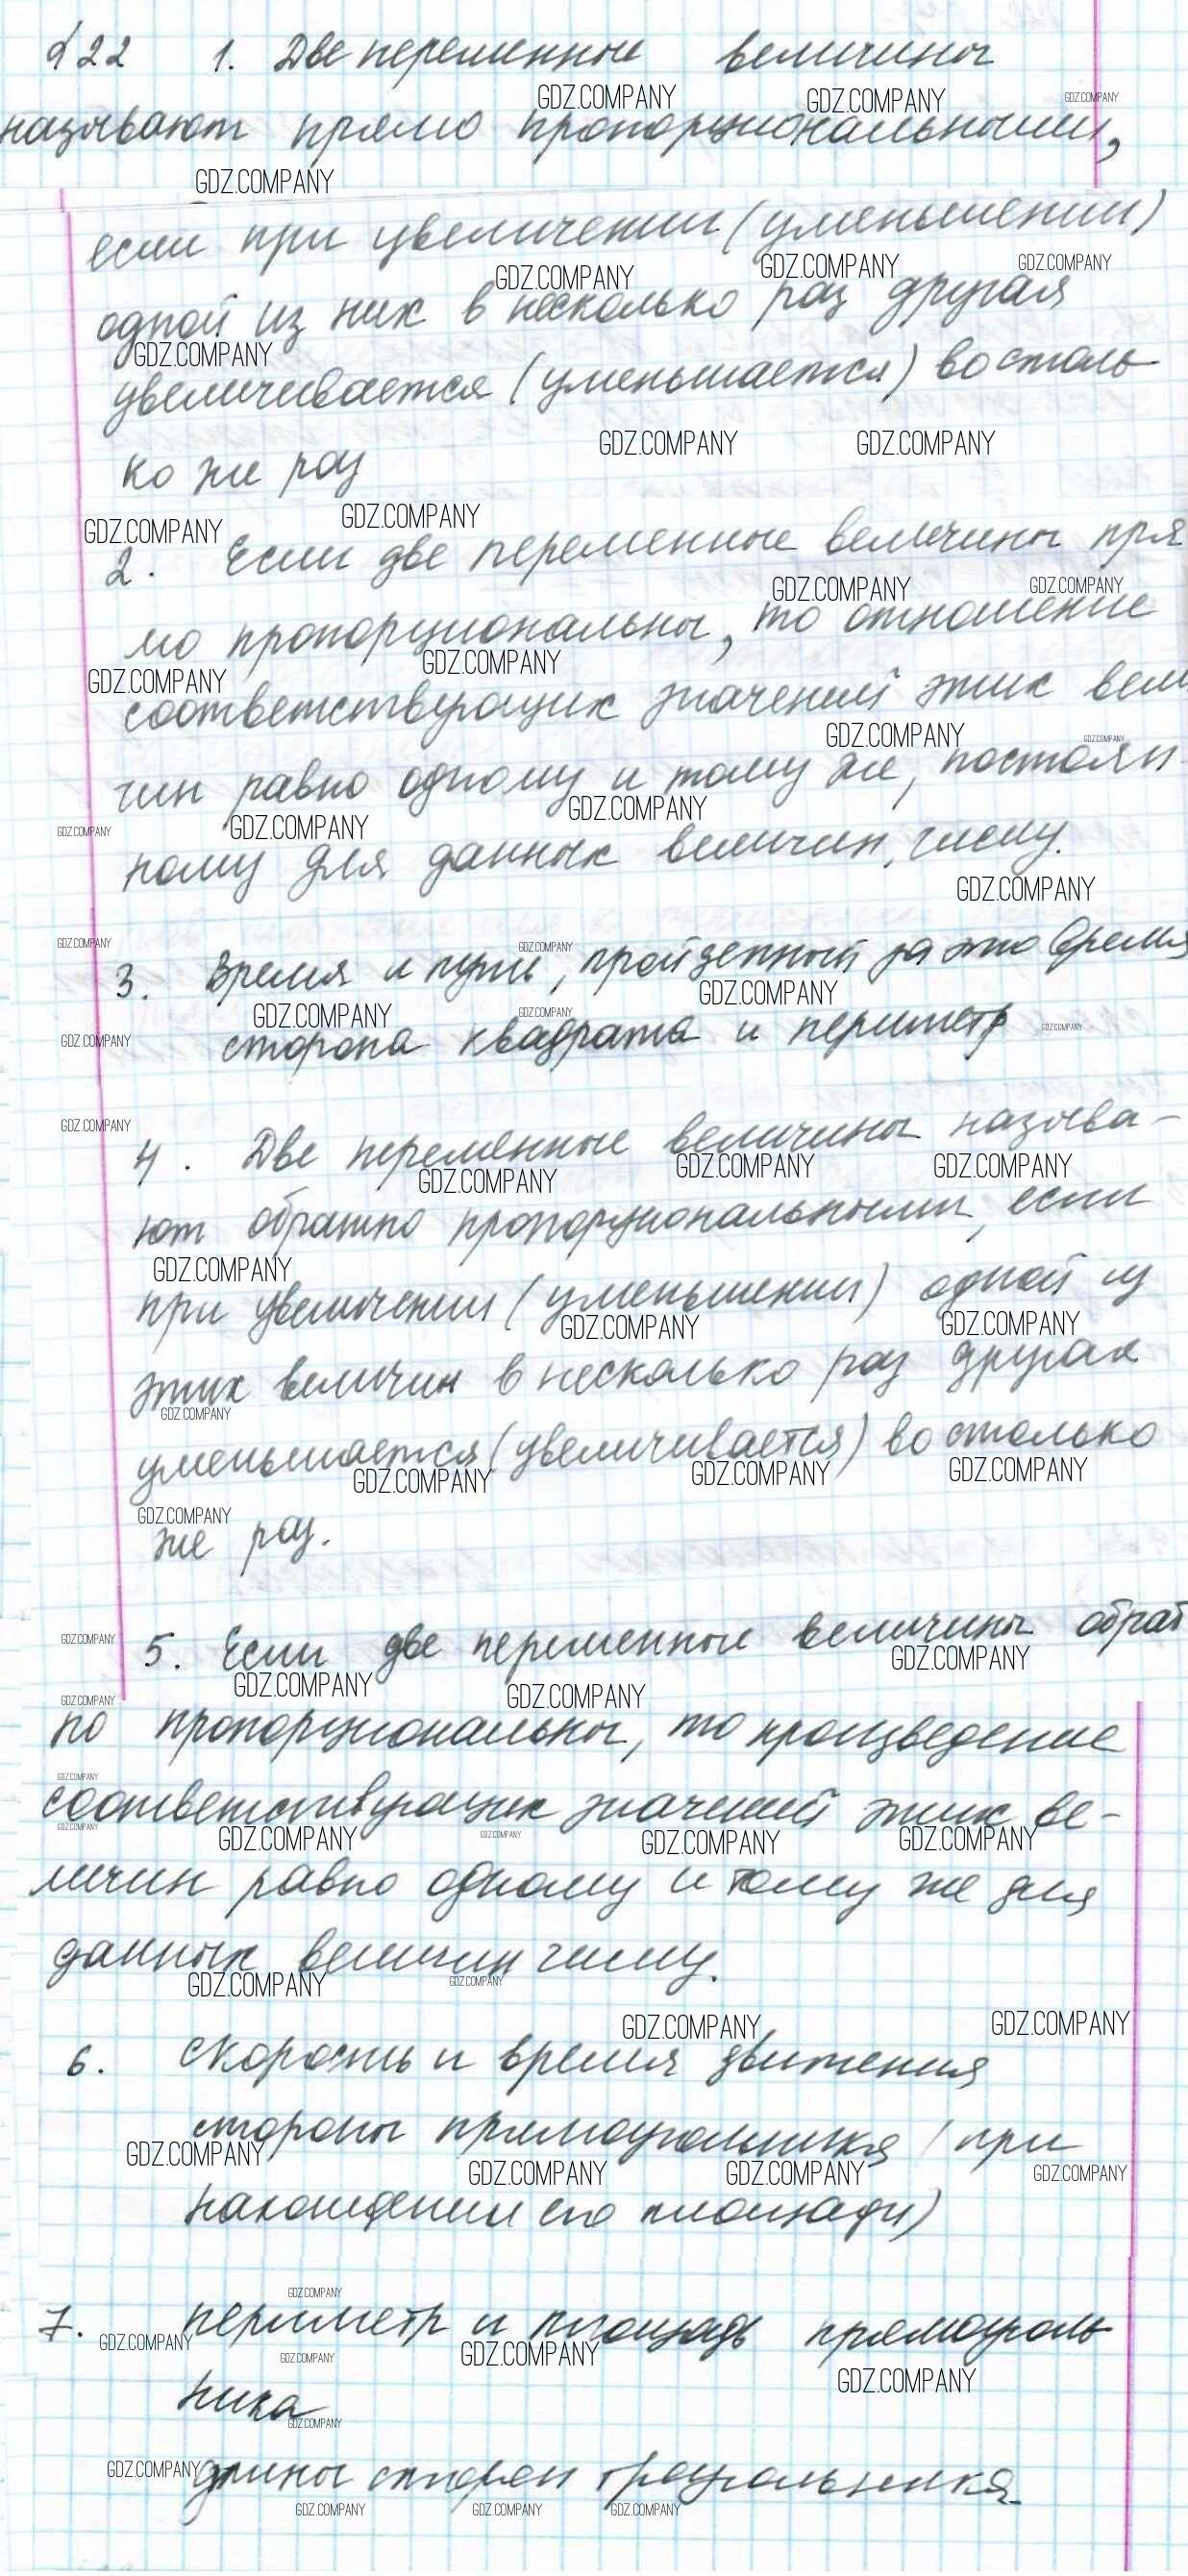 §22 1. Две переменные величины
называют прямо пропорциональными,
если при увеличении (уменьшении)
одной из них в несколько раз другая
увеличивается (уменьшается) во столь
ко же раз
2. Если две переменные величины пря
мо пропорциональны, то отношение
соответствующих значений этих вели
чин равно одному и тому же, постоян-
ному для данных величин, числу.
3. Время и путь, пройденный за это время
сторона квадрата и периметр
4. Две переменные величины называ-
ют обратно пропорциональными, если
при увеличении (уменьшении) одной из
этих величин в несколько раз другая
уменьшается (увеличивается) во столько
же раз.
5. Если две переменные величины обрат
но пропорциональны, то произведение
соответствующих значений этих ве-
личин равно одному и тому же для
данных величин числу.
6. скорость и время движения
стороны прямоугольника (при
нахождении его площади)
7. периметр и площадь прямоуголь
ника
длины сторон треугольника.
GDZ.COMPANY